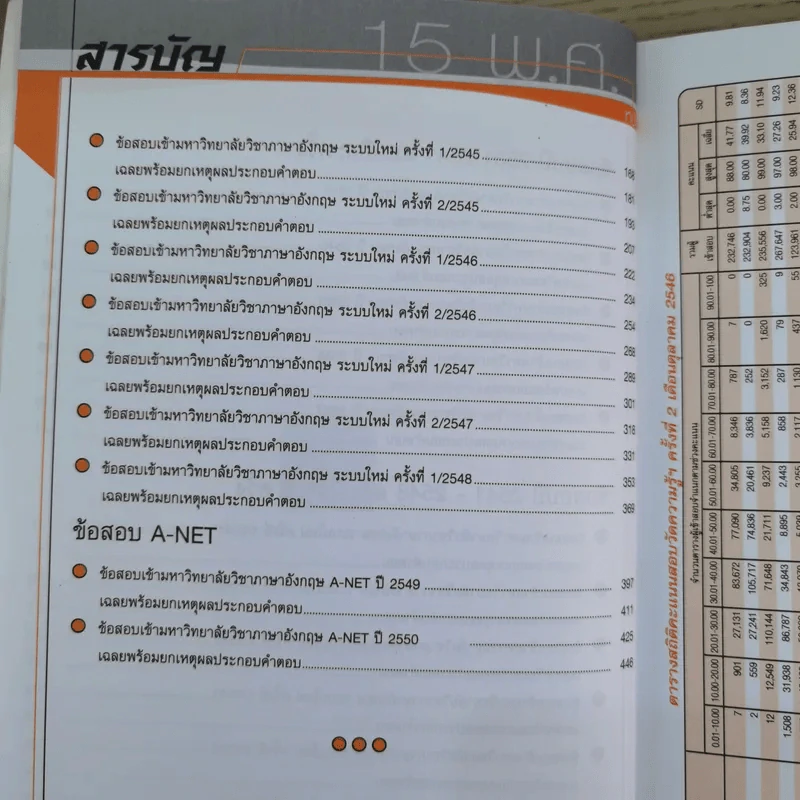 สารบัญ
15 พ.ศ.
ข้อสอบเข้ามหาวิทยาลัยวิชาภาษาอังกฤษ ระบบใหม่ ครั้งที่ 1/2545 168
เฉลยพร้อมยกเหตุผลประกอบคำตอบ 181
ข้อสอบเข้ามหาวิทยาลัยวิชาภาษาอังกฤษ ระบบใหม่ ครั้งที่ 2/2545
เฉลยพร้อมยกเหตุผลประกอบคำตอบ 207
ข้อสอบเข้ามหาวิทยาลัยวิชาภาษาอังกฤษ ระบบใหม่ ครั้งที่ 1/2546 222
เฉลยพร้อมยกเหตุผลประกอบคำตอบ 234
ข้อสอบเข้ามหาวิทยาลัยวิชาภาษาอังกฤษ ระบบใหม่ ครั้งที่ 2/2546 254
เฉลยพร้อมยกเหตุผลประกอบคำตอบ 268
ข้อสอบเข้ามหาวิทยาลัยวิชาภาษาอังกฤษ ระบบใหม่ ครั้งที่ 1/2547 289
เฉลยพร้อมยกเหตุผลประกอบคำตอบ 301
ข้อสอบเข้ามหาวิทยาลัยวิชาภาษาอังกฤษ ระบบใหม่ ครั้งที่ 2/2547 318
เฉลยพร้อมยกเหตุผลประกอบคำตอบ 331
ข้อสอบเข้ามหาวิทยาลัยวิชาภาษาอังกฤษ ระบบใหม่ ครั้งที่ 1/2548 353
เฉลยพร้อมยกเหตุผลประกอบคำตอบ 369
ข้อสอบ A-NET
ข้อสอบเข้ามหาวิทยาลัยวิชาภาษาอังกฤษ A-NET ปี 2549 397
เฉลยพร้อมยกเหตุผลประกอบคำตอบ 411
ข้อสอบเข้ามหาวิทยาลัยวิชาภาษาอังกฤษ A-NET ปี 2550 425
เฉลยพร้อมยกเหตุผลประกอบคำตอบ 446
ตารางสถิติคะแนนสอบวัดความรู้ฯ ครั้งที่ 2 เดือนตุลาคม 2546
จำนวนตารางผู้เข้าสอบจำแนกตามช่วงคะแนน รวมผู้เข้าสอบ คะแนน SD
0.01-10.00 10.00-20.00 20.01-30.00 30.01-40.00 40.01-50.00 50.01-60.00 60.01-70.00 70.01-80.00 80.01-90.00 90.01-100 ต่ำสุด สูงสุด เฉลี่ย
7 901 27,131 83,672 77,090 34,805 8,346 787 7 0 232,746 0.00 88.00 41.77 9.81
2 559 27,241 105,717 74,836 20,461 3,836 252 0 0 232,904 8.75 80.00 39.92 8.36
12 12,549 110,144 71,648 21,711 9,237 5,158 3,152 1,620 325 235,556 0.00 99.00 33.10 11.94
1,508 31,938 86,787 34,843 8,895 2,443 858 287 79 9 267,647 3.00 97.00 27.26 9.23
2,117 1,130 437 55 123,961 2.00 98.00 25.94 12.36